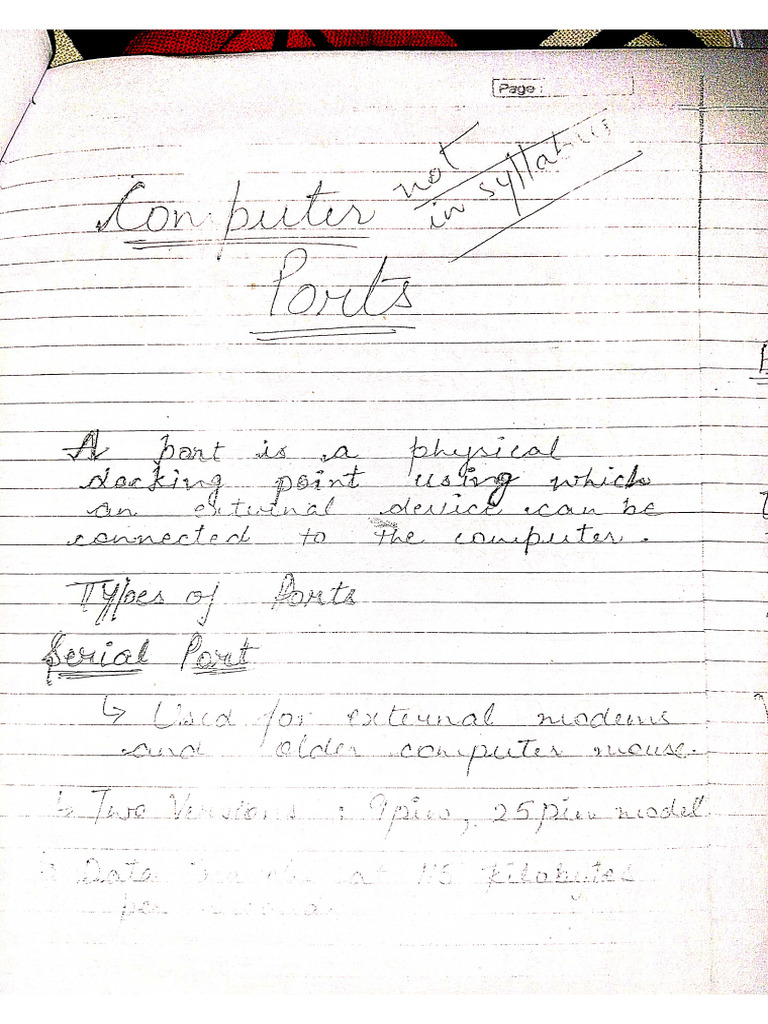 Page :
not
in syllabus
Computer
Ports
A port is a physical
docking point using which
an external device can be
connected to the computer.
Types of Ports
Serial Port
↳ Used for external modems
and older computer mouse.
↳ Two Versions : 9pin, 25pin model
Data at 115 kilobytes
per